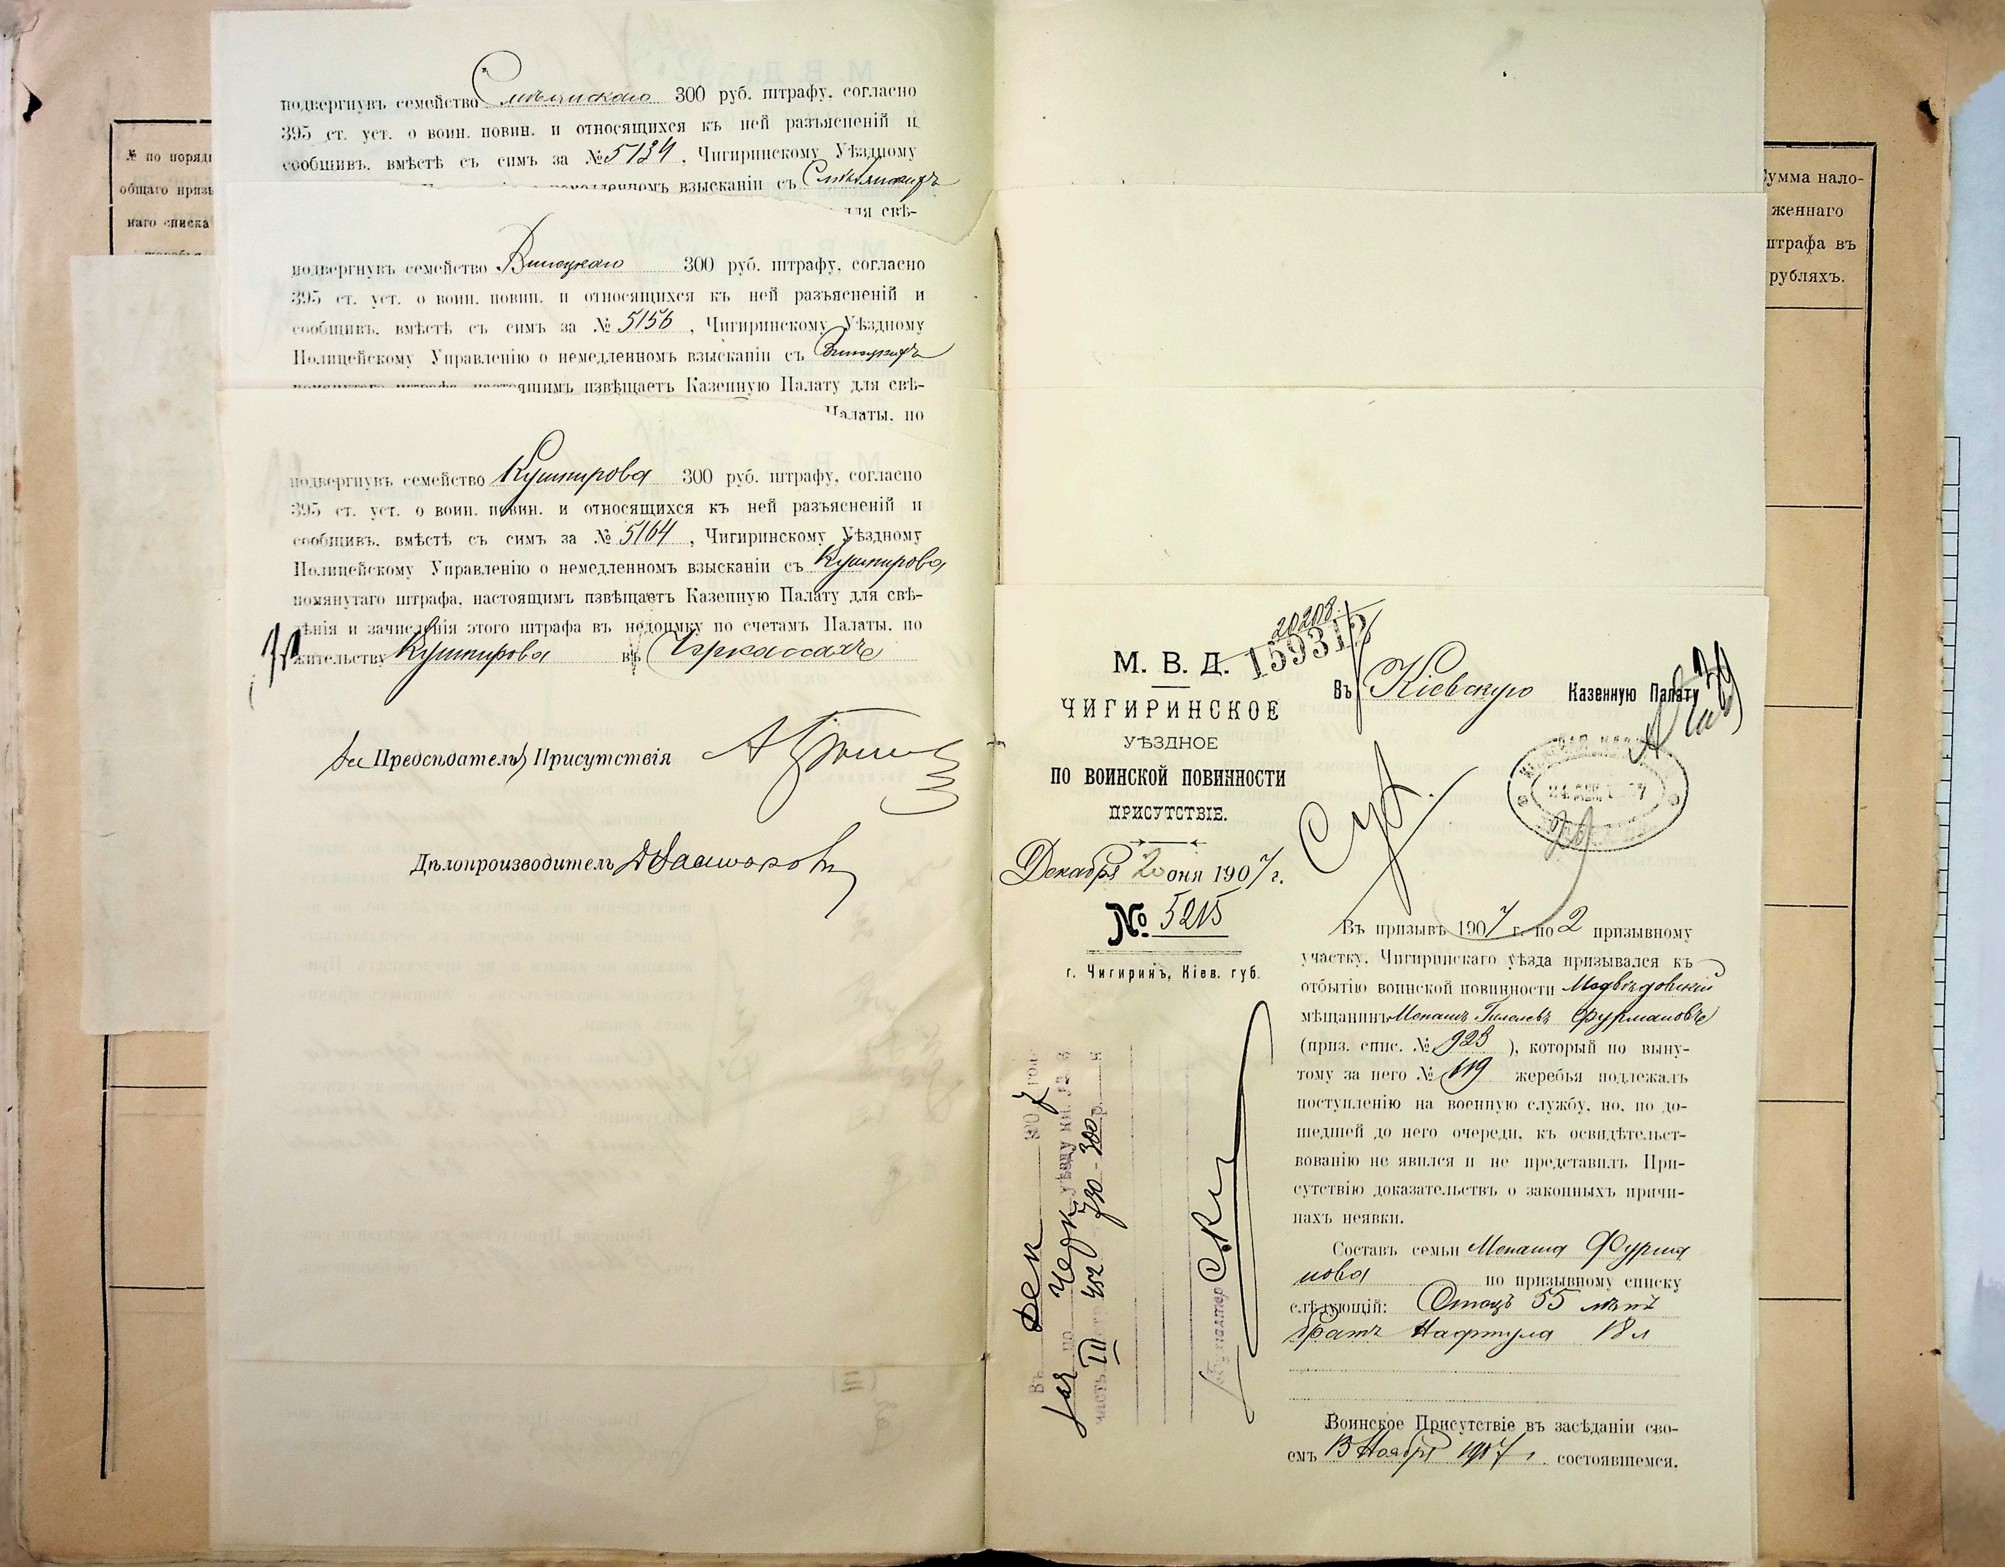 № по поряд
общаго призы
наго списка
подвергнувъ семейство Смѣлянскаго 300 руб. штрафу, согласно
395 ст. уст. о воин. повин. и относящихся къ ней разъясненій и
сообщивъ, вмѣстѣ съ симъ за № 5134, Чигиринскому Уѣздному
взысканіи съ Смѣлянскихъ
для свѣ-
подвергнувъ семейство 300 руб. штрафу, согласно
395 ст. уст. о воин. повин. и относящихся къ ней разъясненій и
сообщивъ, вмѣстѣ съ симъ за № 5156, Чигиринскому Уѣздному
Полицейскому Управленію о немедленномъ взысканіи съ
извѣщаетъ Казенную Палату для свѣ-
Палаты, по
подвергнувъ семейство Кушнирова 300 руб. штрафу, согласно
395 ст. уст. о воин. повин. и относящихся къ ней разъясненій и
сообщивъ, вмѣстѣ съ симъ за № 5164, Чигиринскому Уѣздному
Полицейскому Управленію о немедленномъ взысканіи съ Кушнирова
помянутаго штрафа, настоящимъ извѣщаетъ Казенную Палату для свѣ-
дѣнія и зачисленія этого штрафа въ недоимку по счетамъ Палаты, по
жительству Кушнирова въ Черкассахъ
Предсѣдатель Присутствія
Дѣлопроизводитель
Сумма нало-
женнаго
штрафа въ
рубляхъ.
20203
159313
М. В. Д.
ЧИГИРИНСКОЕ
УѢЗДНОЕ
ПО ВОИНСКОЙ ПОВИННОСТИ
ПРИСУТСТВІЕ.
Декабря 20 дня 1907 г.
№ 5215
г. Чигиринъ, Кіев. губ.
Въ Кіевскую Казенную Палату
Въ призывъ 1907 г. по 2 призывному
участку, Чигиринскаго уѣзда призывался къ
отбытію воинской повинности Медвѣдовскій
мѣщанинъ Менашъ Гилелевъ Фурмановъ
(приз. спис. № 923 ), который по выну-
тому за него № 619 жеребья подлежалъ
поступленію на военную службу, но, по до-
шедшей до него очереди, къ освидѣтельст-
вованію не явился и не представилъ При-
сутствію доказательствъ о законныхъ причи-
нахъ неявки.
Составъ семьи Менаша Фурма
нова по призывному списку
слѣдующій: Отецъ 55 лѣтъ
братъ Нафтула 18 л
Воинское Присутствіе въ засѣданіи сво-
емъ 13 Ноября 1907 г. состоявшемся,
Въ Дек 1907 года
по Черк. уѣзду кн.
часть III 452 730 - 300 р.
Бухгалтер